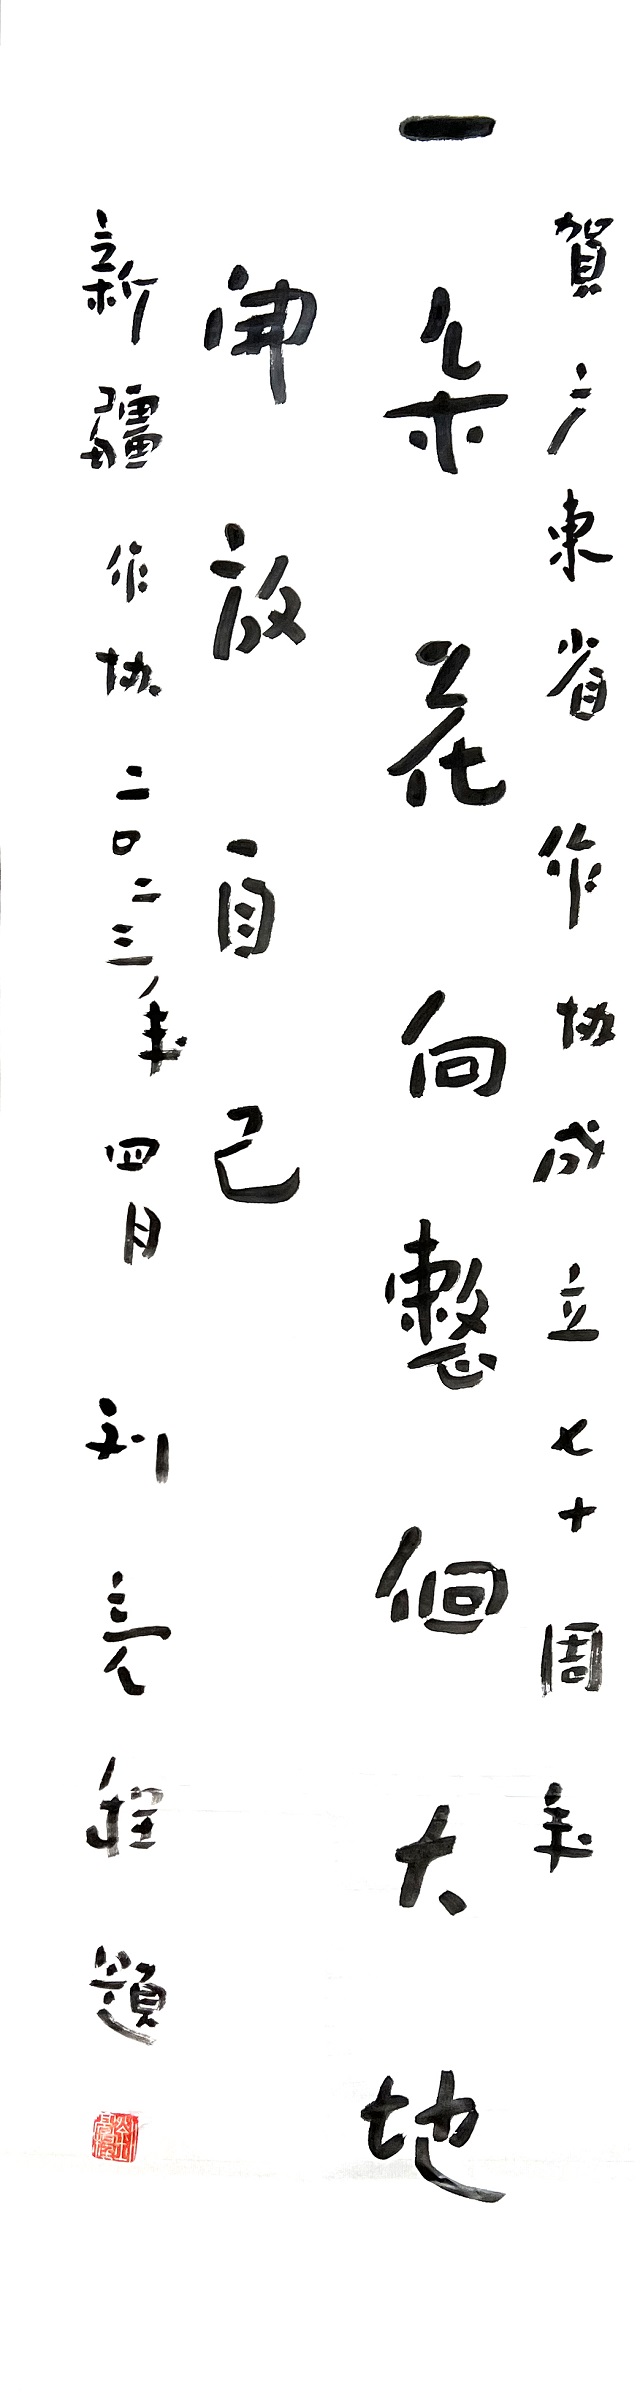 賀广東省作协成立七十周年
一朵花向整個大地
開放自己
新疆作协二〇二三年四月刘亮程題